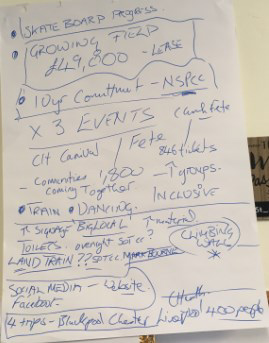 • SKATE BOARD PROGRESS.
• GROWING FIELD
£49,000 - LEASE
• 10yr Commitment - NSPCC
X 3 EVENTS
Fete
Clt Carnival
Fete
846 tickets
- Comunities 1,800
Coming Together
↑ groups.
INCLUSIVE
• TRAIN • DANCING.
↑ Signage BIGLOCAL
TOILETS. overnight Sat ec?
CLIMBING
WALL
*
LAND TRAIN ??
SOCIAL MEDIA - Website
Facebook -
4 trips - Blackpool Chester Liverpool 400 people